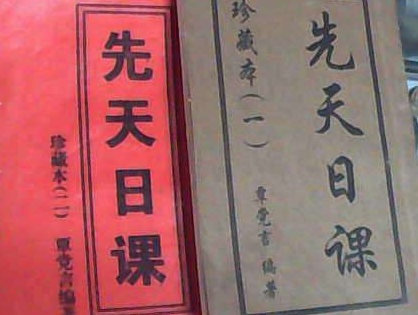 先天日课
珍藏本(二) 覃党言编著
先天日课
珍藏本(一)
覃党言 编著